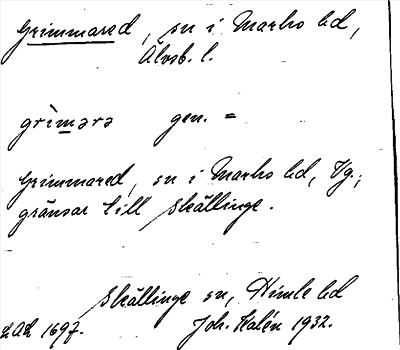 Grimmared, sn i Marks hd,
Älvsb. l.
grìmərə gen. =
Grimmared, sn i Marks hd, Vg.;
gränsar till Skällinge.
Skällinge sn, Himle hd
LAL 1697. Joh. Kalén 1932.